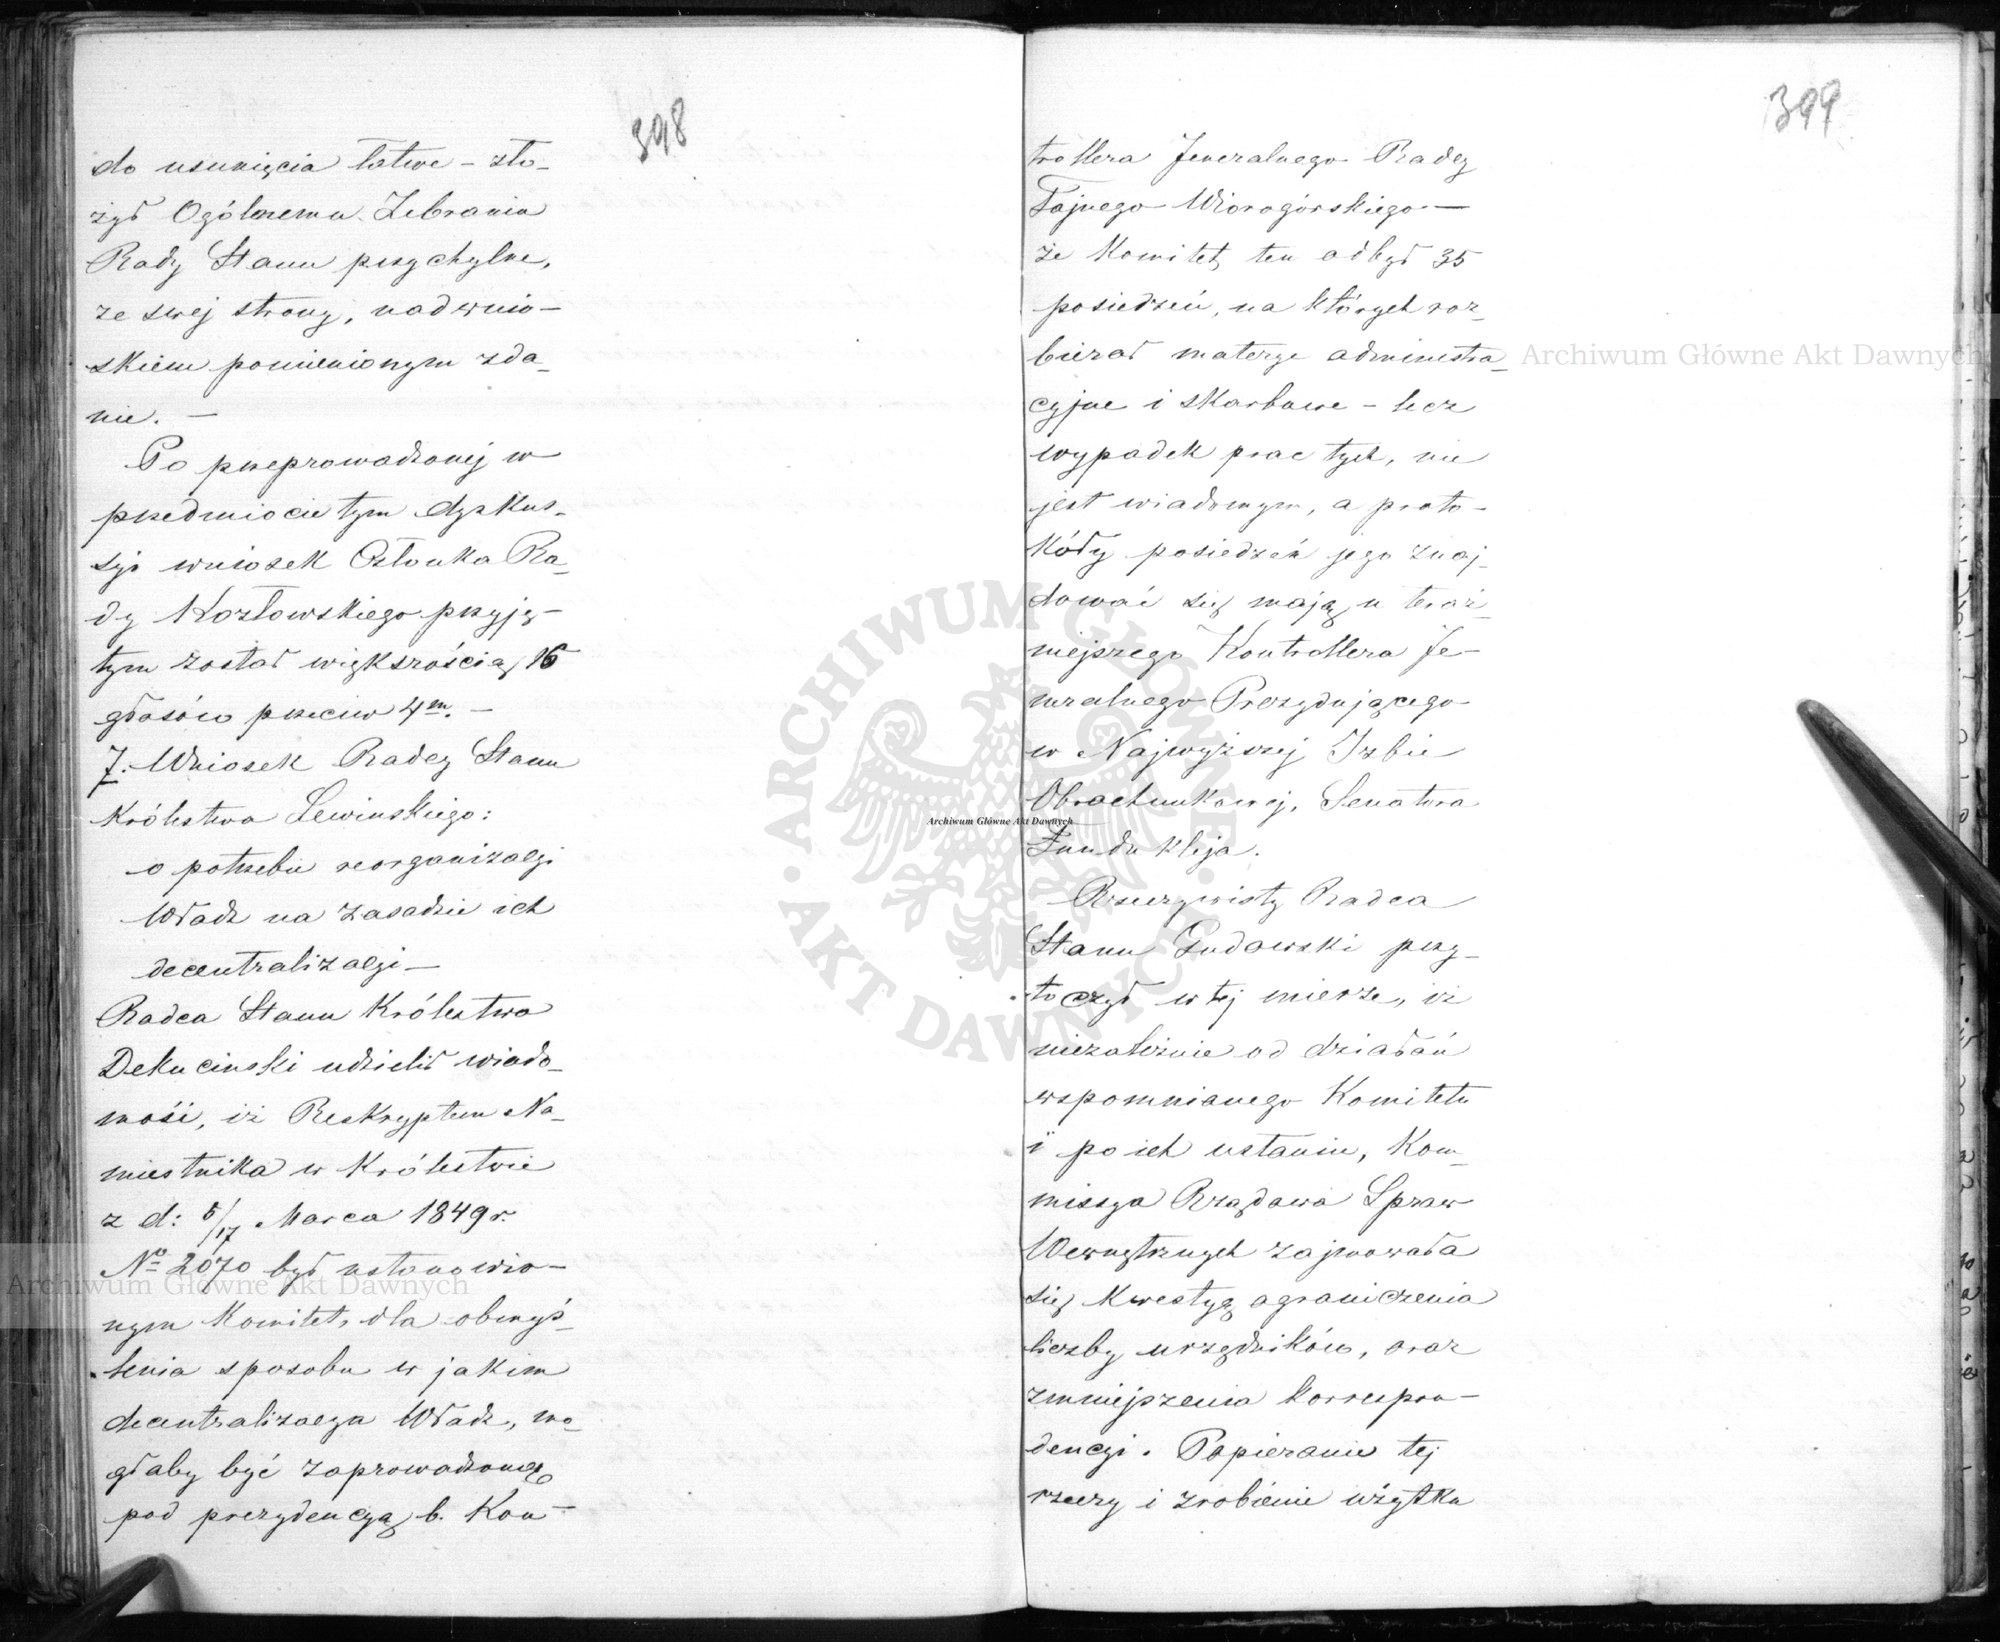 398
do usunięcia łatwe – zło-
żył Ogólnemu Zebraniu
Rady Stanu przychylne,
ze swej strony, nad wnio-
skiem pomienionym zda-
nie. –
Po przeprowadzonej w
przedmiocie tym dyskus-
syi wniosek Członka Ra-
dy Kozłowskiego przyję-
tym został większością 16
głosów przeciw 4m. –
7. Wniosek Radcy Stanu
Królestwa Lewińskiego:
o potrzebie reorganizacyi
Władz na zasadzie ich
decentralizacyi –
Radca Stanu Królestwa
Dekucinski udzielił wiado-
mości, iż Reskryptem Na-
miestnika w Królestwie
z d: 5/17 Marca 1849 r.
No 2070 był ustanowio-
nym Komitet, dla obmyś-
lenia sposobu w jakim
decentralizacya Władz, mo-
głaby być zaprowadzoną
pod prezydencyą b. Kon-
399
trollera Jeneralnego Radcy
Tajnego Wiorogórskiego –
że Komitet ten odbył 35
posiedzeń, na których roz-
bierał materye administra-
cyjne i skarbowe – lecz
wypadek prac tych, nie
jest wiadomym, a proto-
kóły posiedzeń jego znaj-
dować się mają u teraź-
niejszego Kontrollera Je-
neralnego Prezydującego
w Najwyższej Izbie
Obrachunkowej, Senatora
Funduklęja.
Rzeczywisty Radca
Stanu Gudowski przy-
toczył w tej mierze, iż
niezależnie od działań
wspomnianego Komitetu
i po ich ustaniu, Kom-
missya Rządowa Spraw
Wewnętrznych zajmowała
się kwestyą ograniczenia
liczby urzędników, oraz
zmniejszenia korrespon-
dencyi. Popieranie tej
rzeczy i zrobienie użytku
Archiwum Główne Akt Dawnych
Archiwum Główne Akt Dawnych
Archiwum Główne Akt Dawnych
ARCHIWUM GŁÓWNE AKT DAWNYCH